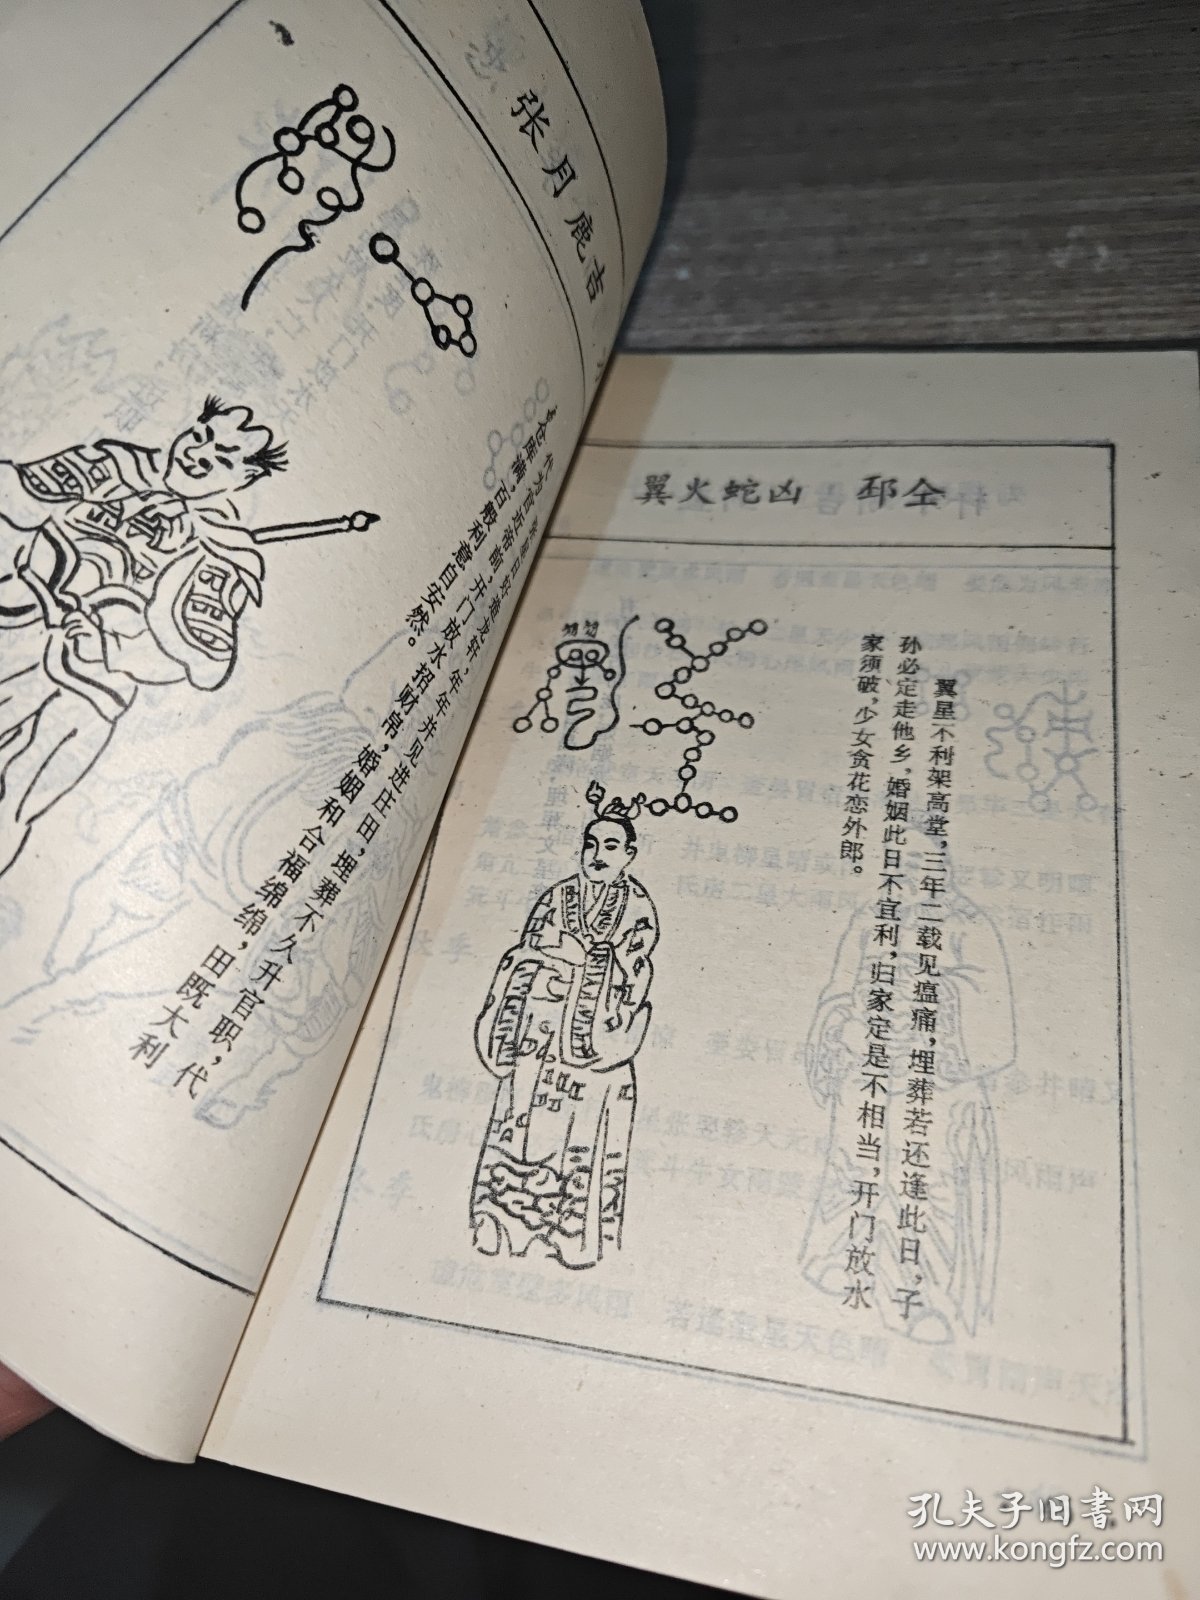 张月鹿吉
张星日好造龙轩，年年并见进庄田，埋葬不久升官职，代
代为官近帝前，开门放水招财帛，婚姻和合福绵绵，田既大利
仓库满，百般利意自安然。
翼火蛇凶 邳仝
翼星不利架高堂，三年二载见瘟痛，埋葬若还逢此日，子
孙必定走他乡，婚姻此日不宜利，归家定是不相当，开门放水
家须破，少女贪花恋外郎。
孔夫子旧书网
www.kongfz.com